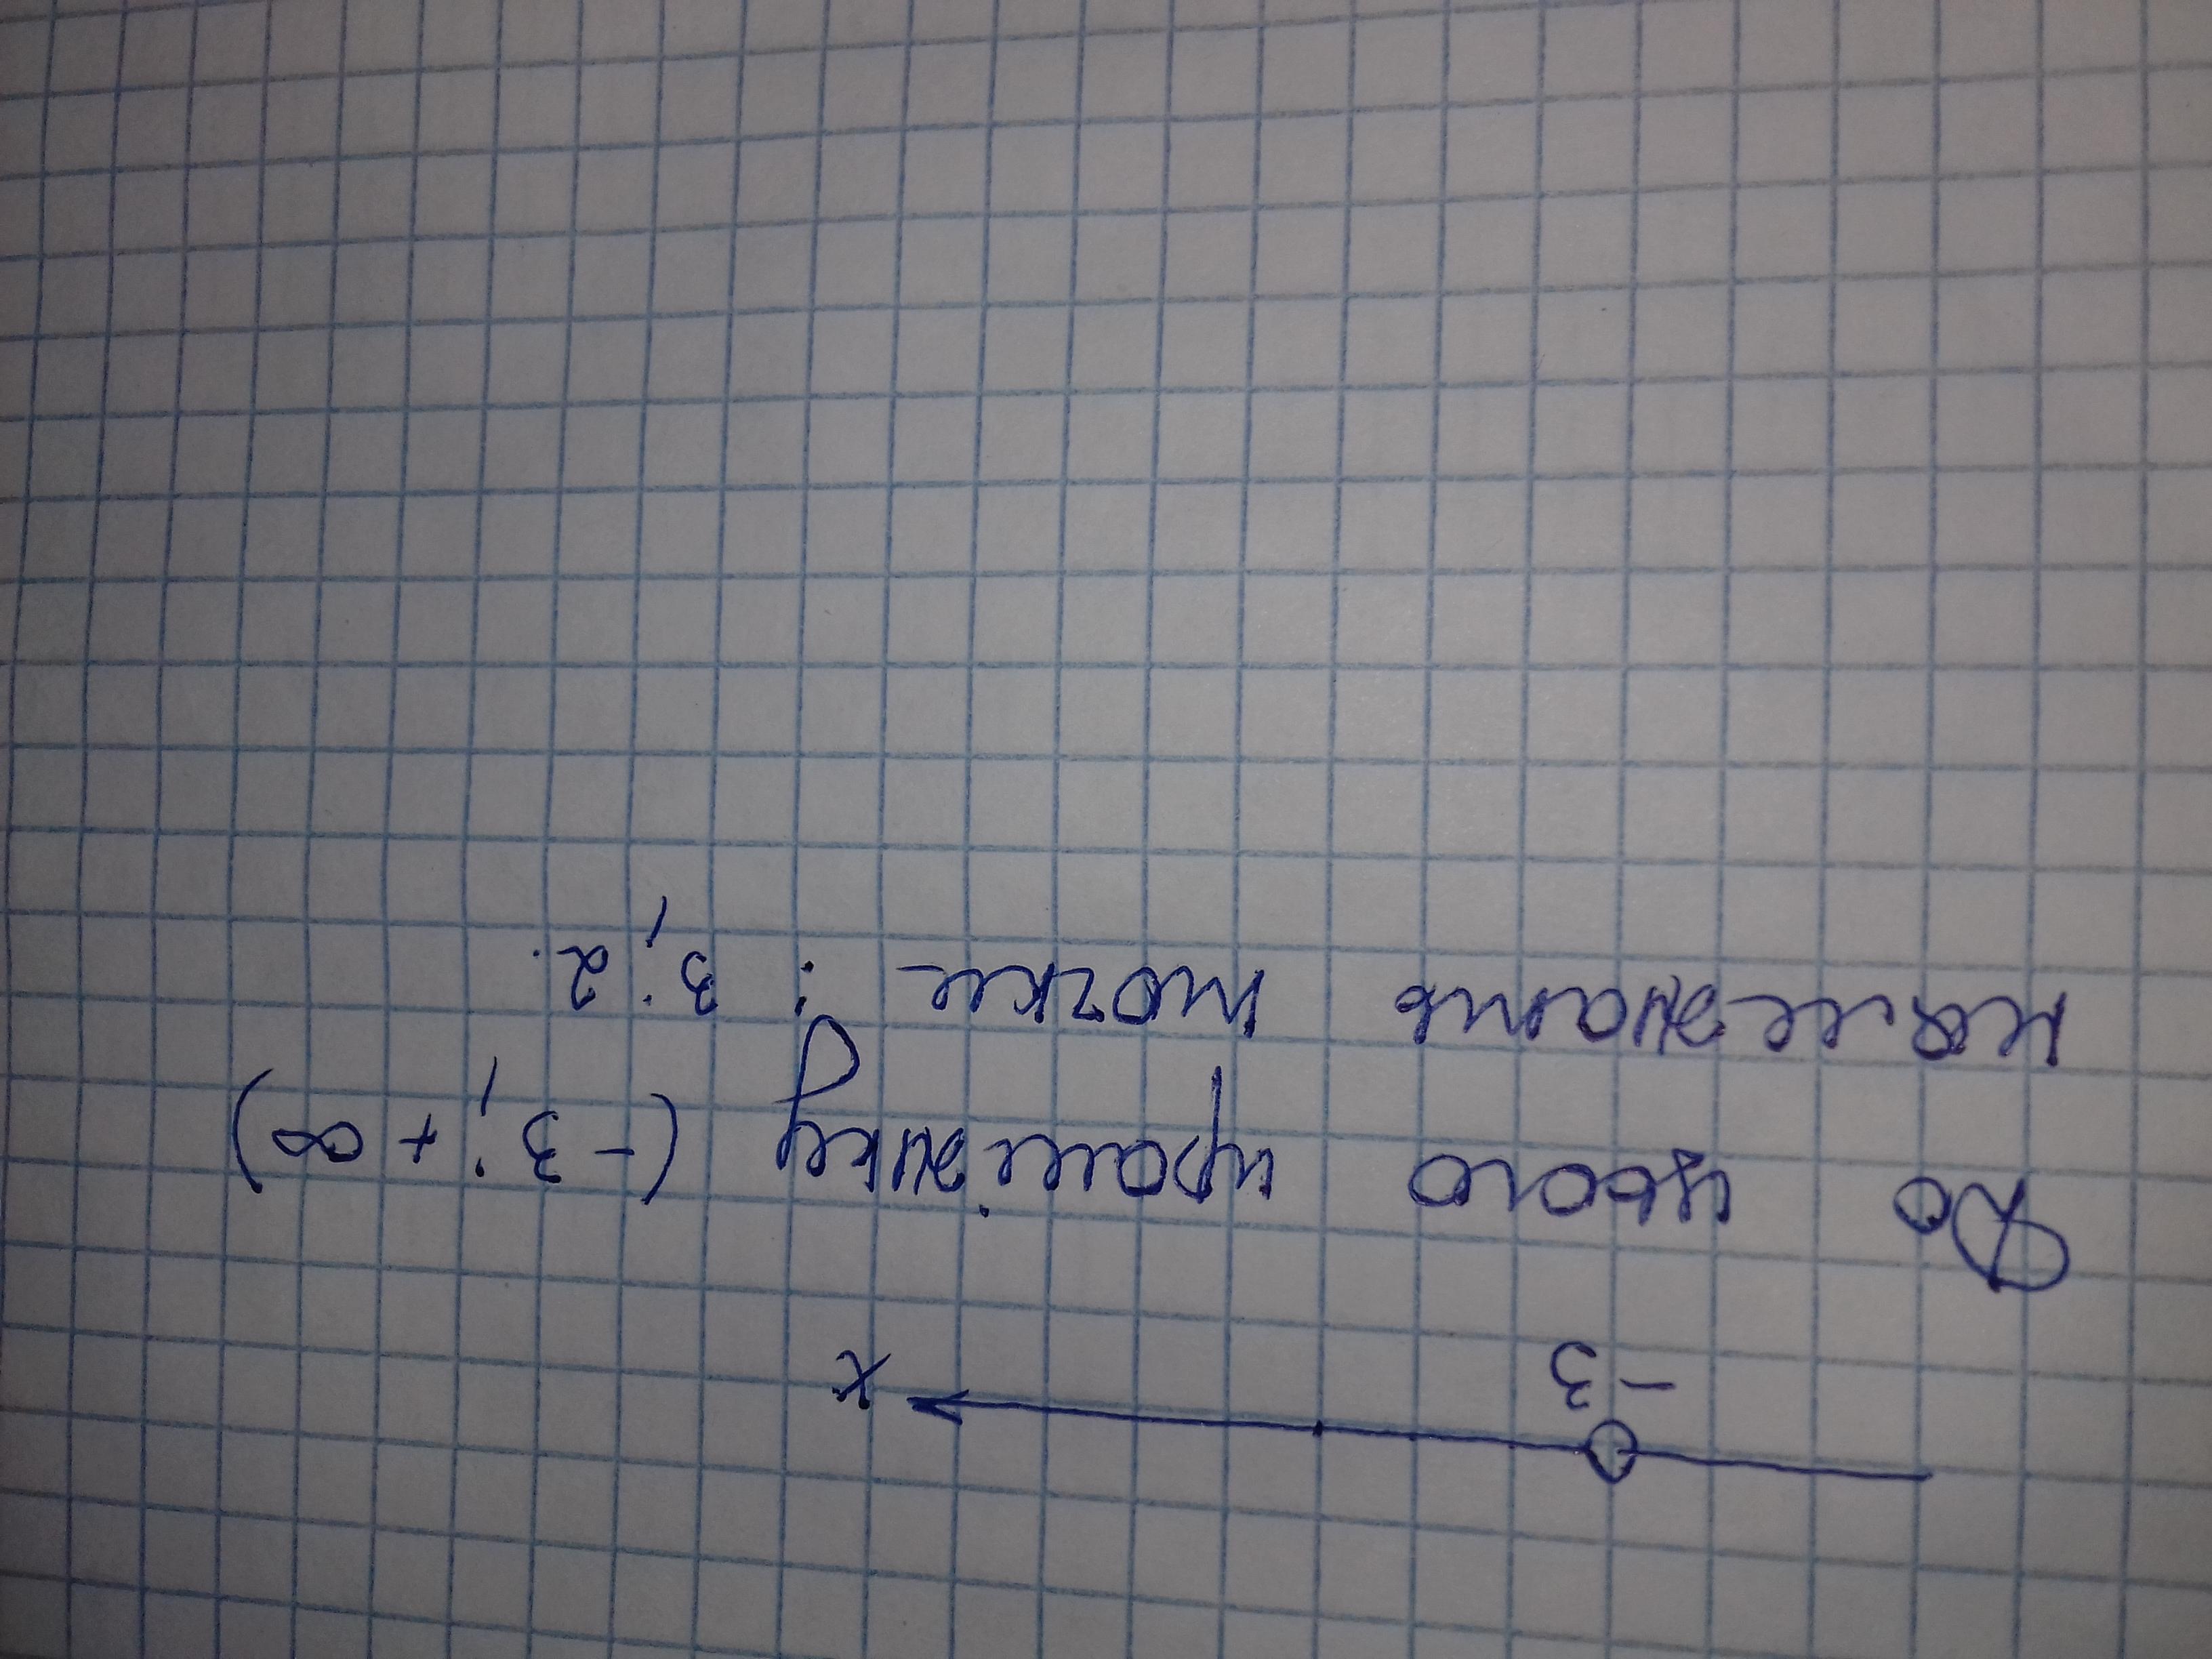 -3 x
До цього проміжку (-3; +∞)
належать точки : 3; 2.